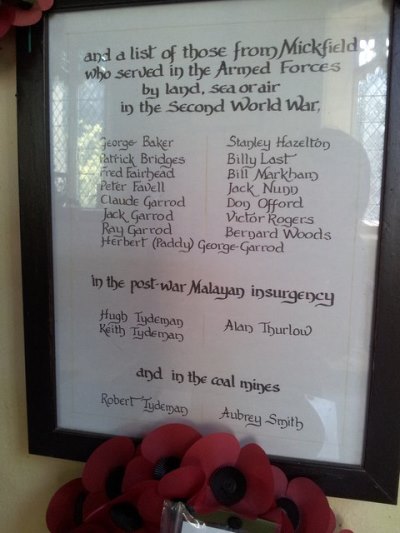 and a list of those from Mickfield
who served in the Armed Forces
by land, sea or air
in the Second World War,
George Baker Stanley Hazelton
Patrick Bridges Billy Last
Fred Fairhead Bill Markham
Peter Favell Jack Nunn
Claude Garrod Don Offord
Jack Garrod Victor Rogers
Ray Garrod Bernard Woods
Herbert (Paddy) George-Garrod
in the post-war Malayan insurgency
Hugh Tydeman Alan Thurlow
Keith Tydeman
and in the coal mines
Robert Tydeman Aubrey Smith